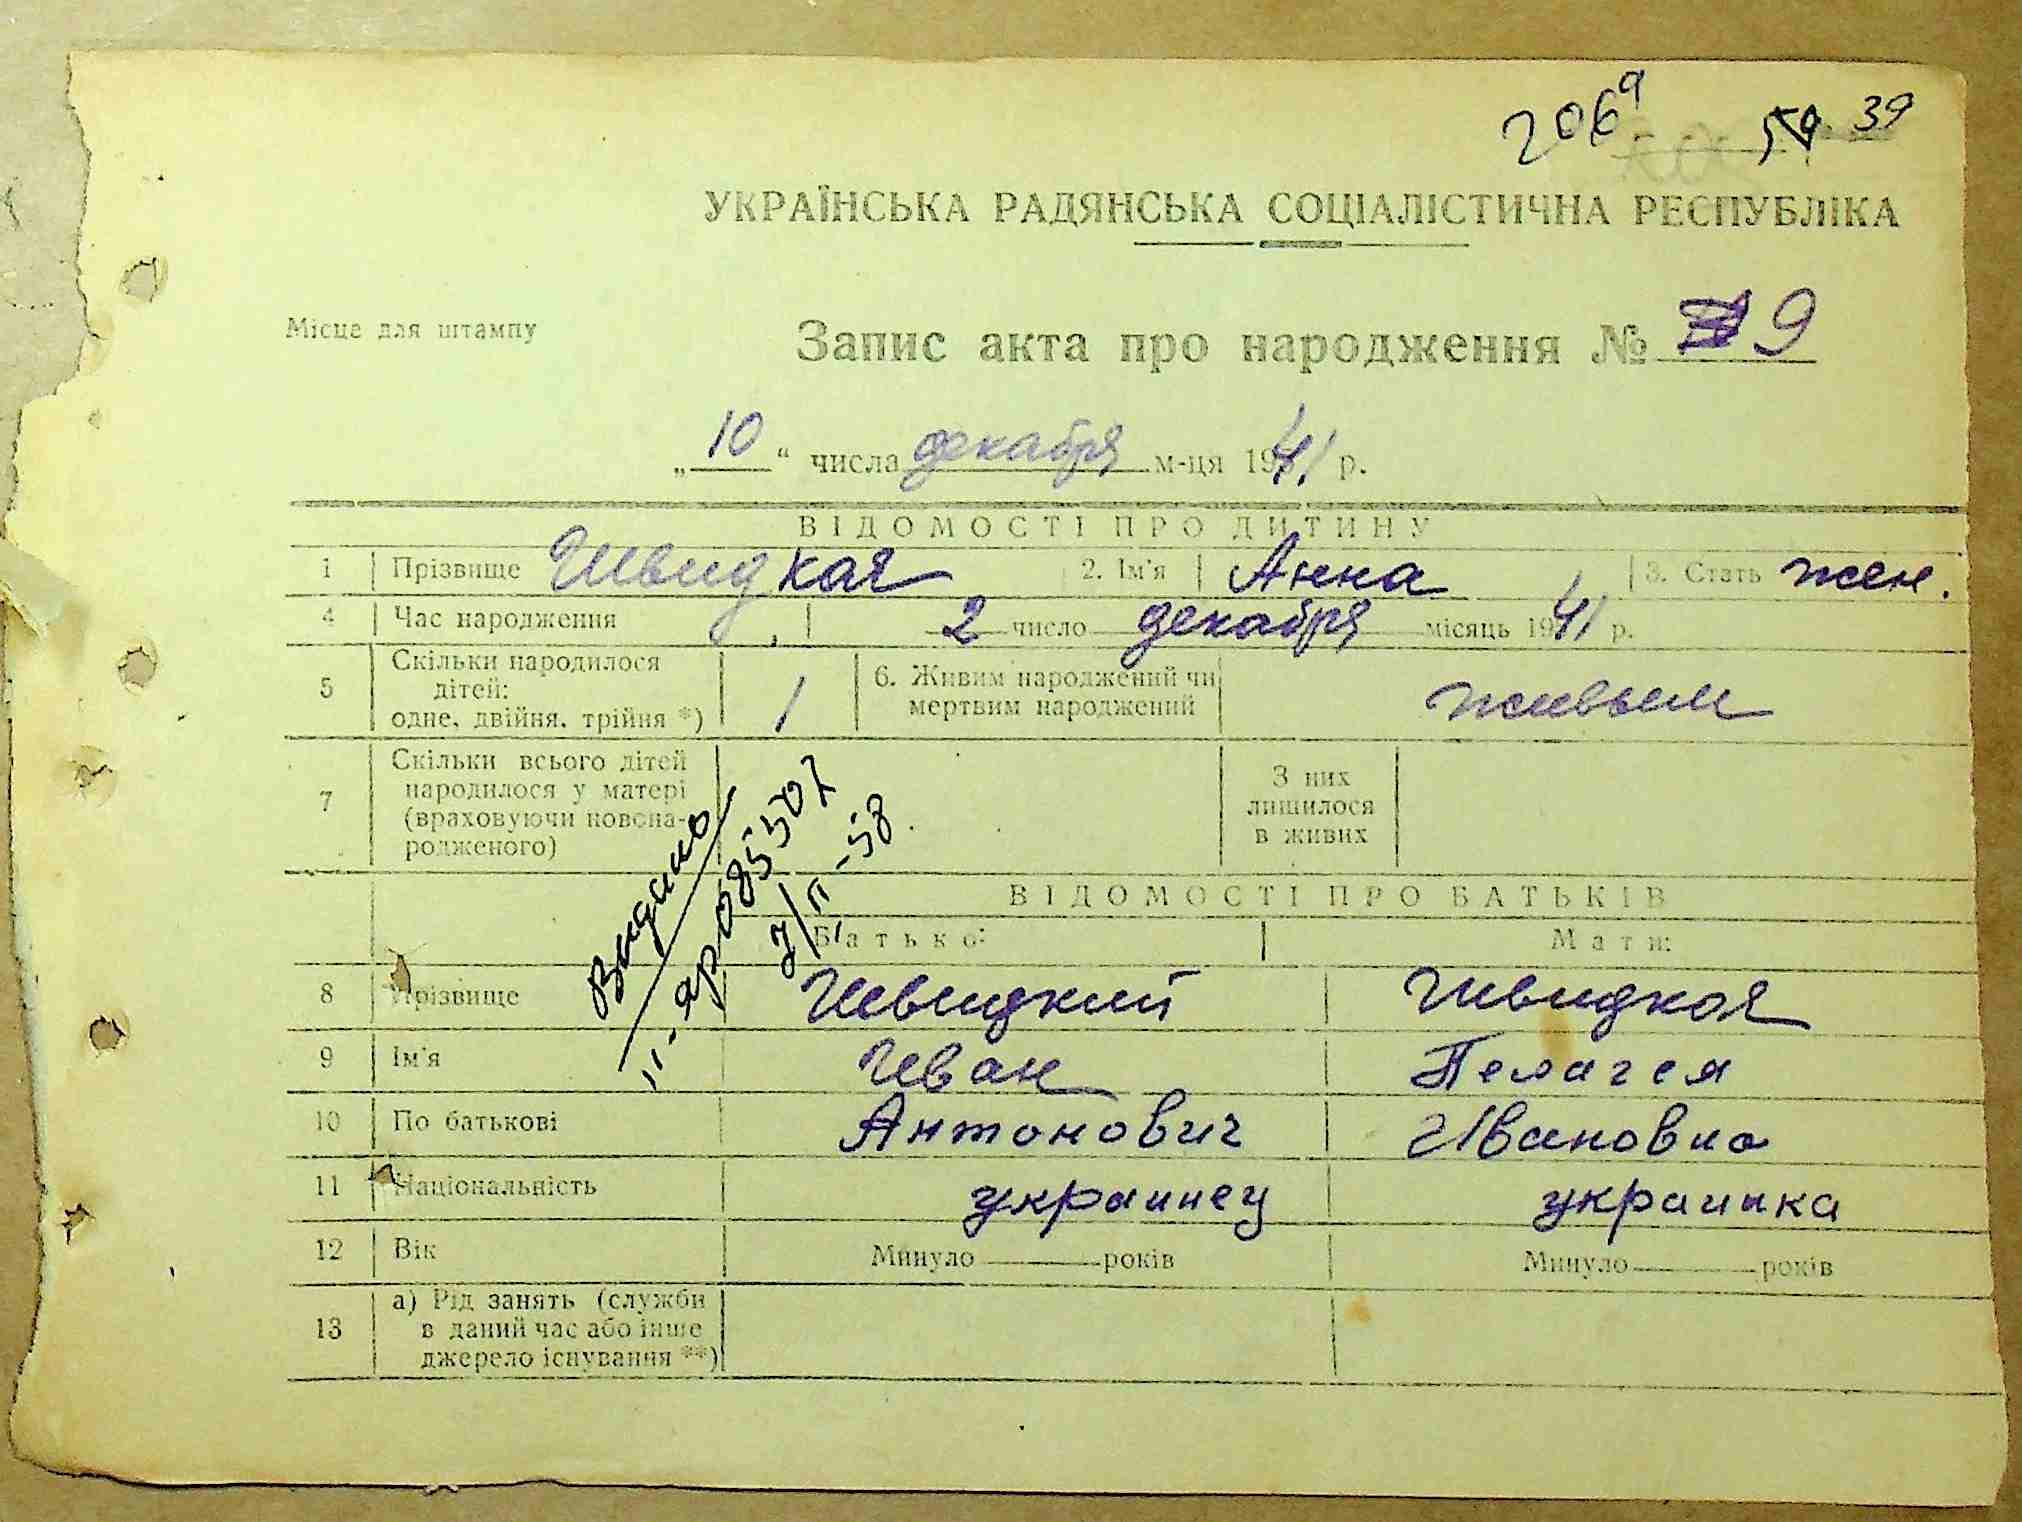 206⁹ 39
УКРАЇНСЬКА РАДЯНСЬКА СОЦІАЛІСТИЧНА РЕСПУБЛІКА
Місце для штампу
Запис акта про народження № 9
„10“ числа декабря м-ця 1941 р.
ВІДОМОСТІ ПРО ДИТИНУ
1 Прізвище Швидкая 2. Ім'я Анна 3. Стать жен.
4 Час народження 2 число декабря місяць 1941 р.
5 Скільки народилося дітей: одне, двійня, трійня *) 1 6. Живим народжений чи мертвим народжений живым
7 Скільки всього дітей народилося у матері (враховуючи новонародженого) З них лишилося в живих
Видано
II-яр 085507
7/II-58.
ВІДОМОСТІ ПРО БАТЬКІВ
Батько: Мати:
8 Прізвище Швидкий Швидкая
9 Ім'я Иван Пелагея
10 По батькові Антонович Ивановна
11 Національність украинец украинка
12 Вік Минуло років Минуло років
13 а) Рід занять (служби в даний час або інше джерело існування **)